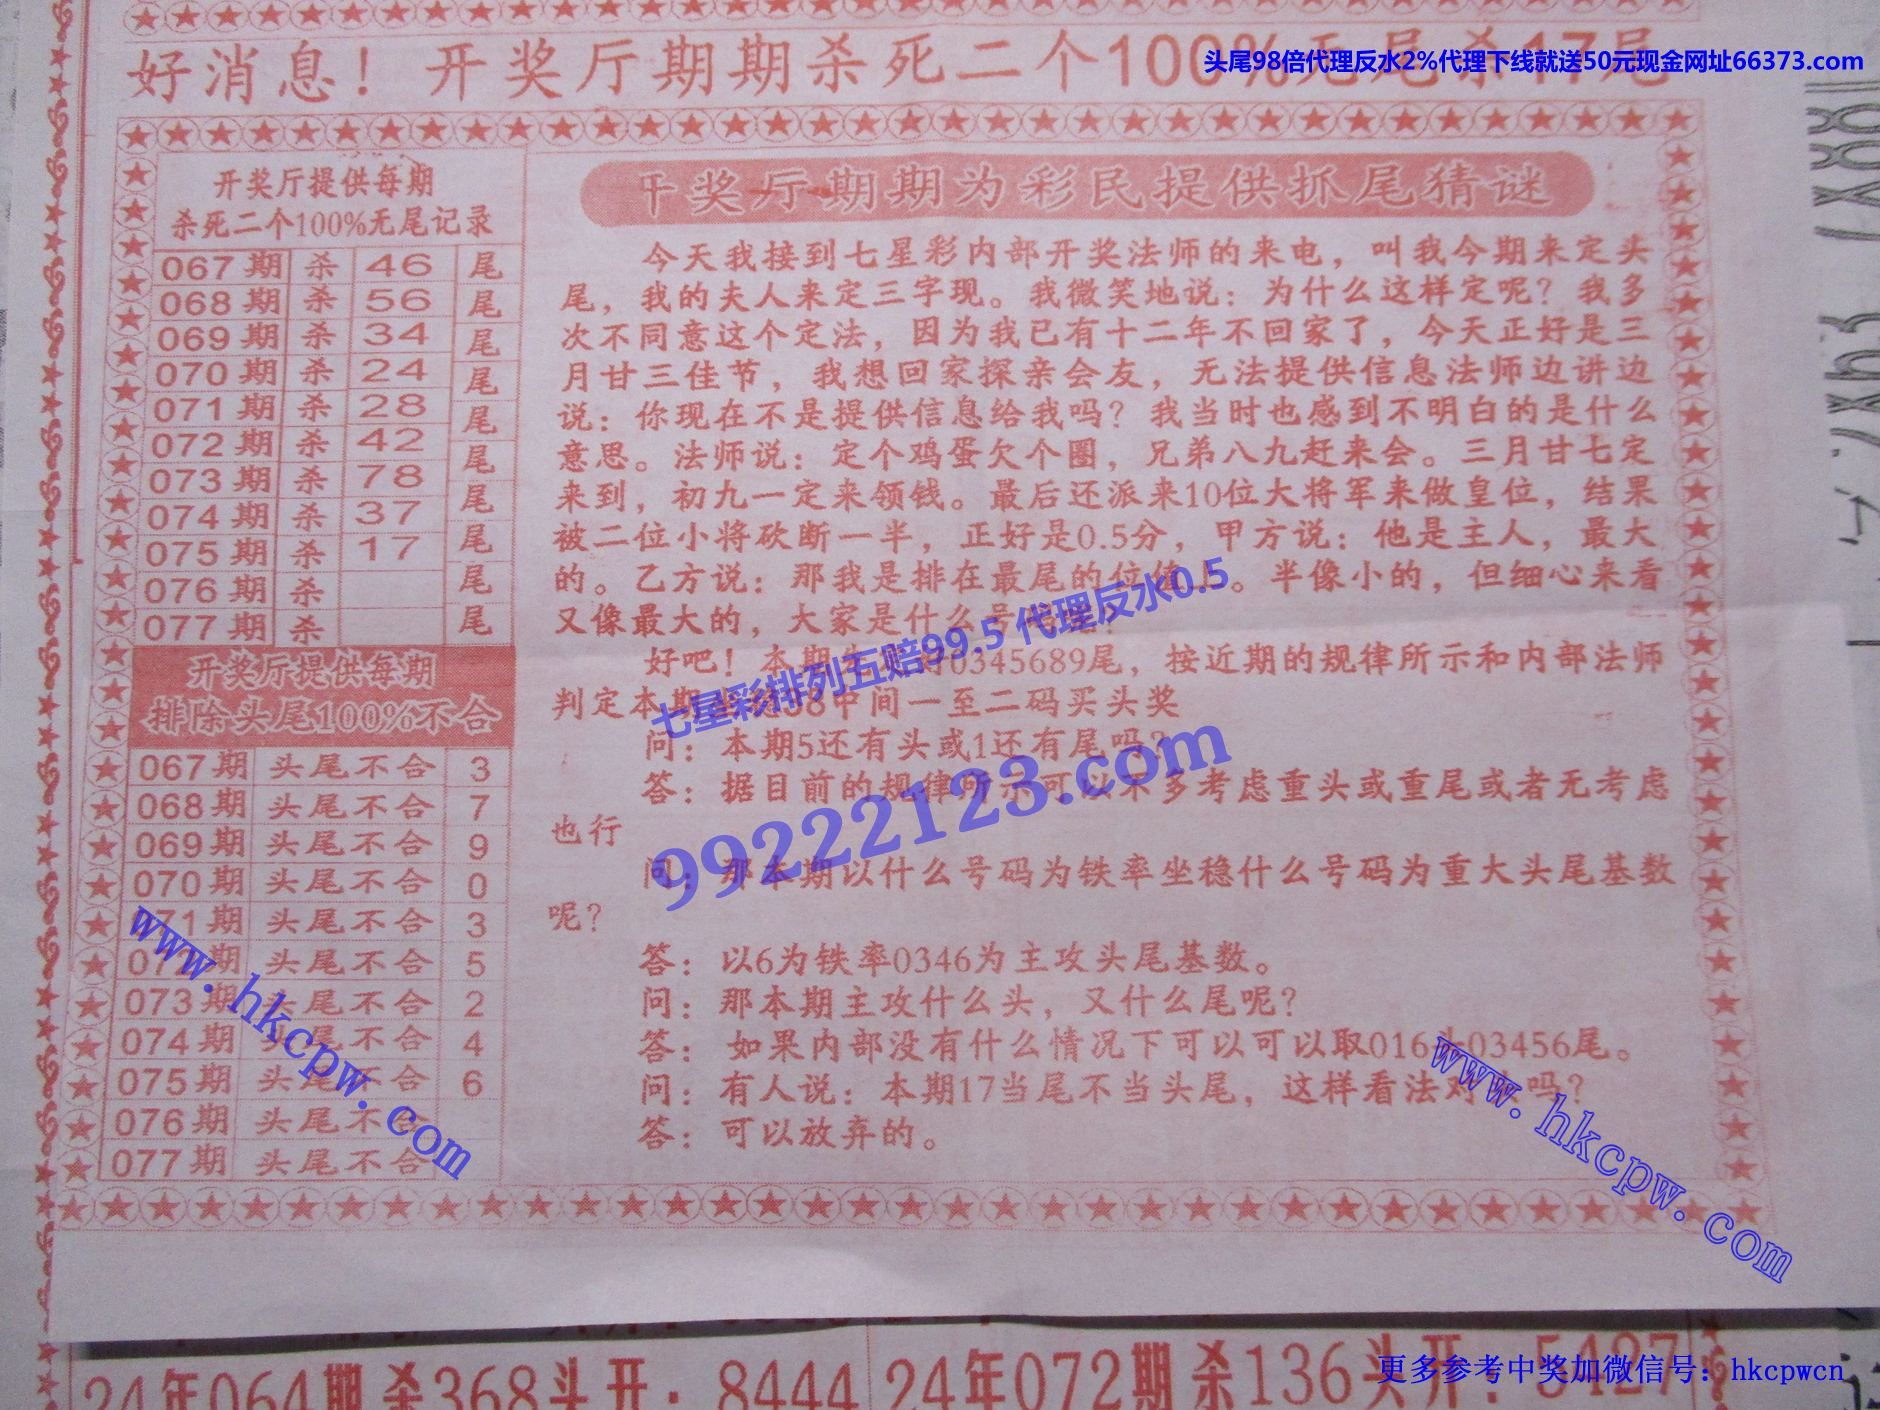 头尾98倍代理反水2%代理下线就送50元现金网址66373.com
好消息！开奖厅期期杀死二个100%无尾杀17尾
开奖厅提供每期
杀死二个100%无尾记录
067期 杀 46 尾
068期 杀 56 尾
069期 杀 34 尾
070期 杀 24 尾
071期 杀 28 尾
072期 杀 42 尾
073期 杀 78 尾
074期 杀 37 尾
075期 杀 17 尾
076期 杀 尾
077期 杀 尾
开奖厅提供每期
排除头尾100%不合
067期 头尾不合 3
068期 头尾不合 7
069期 头尾不合 9
070期 头尾不合 0
071期 头尾不合 3
072期 头尾不合 5
073期 头尾不合 2
074期 头尾不合 4
075期 头尾不合 6
076期 头尾不合
077期 头尾不合
开奖厅期期为彩民提供抓尾猜谜
今天我接到七星彩内部开奖法师的来电，叫我今期来定头
尾，我的夫人来定三字现。我微笑地说：为什么这样定呢？我多
次不同意这个定法，因为我已有十二年不回家了，今天正好是三
月甘三佳节，我想回家探亲会友，无法提供信息法师边讲边
说：你现在不是提供信息给我吗？我当时也感到不明白的是什么
意思。法师说：定个鸡蛋欠个圈，兄弟八九赶来会。三月甘七定
来到，初九一定来领钱。最后还派来10位大将军来做皇位，结果
被二位小将砍断一半，正好是0.5分，甲方说：他是主人，最大
的。乙方说：那我是排在最尾的位值上。半像小的，但细心来看
又像最大的，大家是什么号码呢？
好吧！本期 0345689尾，按近期的规律所示和内部法师
判定本期 38中间一至二码买头奖
问：本期5还有头或1还有尾吗？
答：据目前的规律所示可以不多考虑重头或重尾或者无考虑
也行
问：那本期以什么号码为铁率坐稳什么号码为重大头尾基数
呢？
答：以6为铁率0346为主攻头尾基数。
问：那本期主攻什么头，又什么尾呢？
答：如果内部没有什么情况下可以可以取016头03456尾。
问：有人说：本期17当尾不当头尾，这样看法对 吗？
答：可以放弃的。
七星彩排列五赔99.5 代理反水0.5
99222123.com
www.hkcpw.com
www.hkcpw.com
24年064期杀368头开：8444 24年072期杀136头开：5427
更多参考中奖加微信号：hkcpwcn